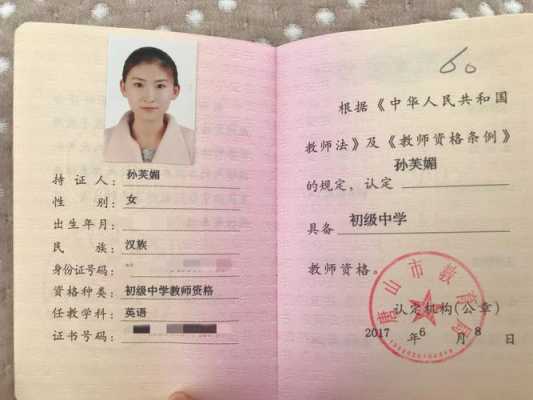 持 证 人： 孙芙媚
性 别： 女
出生年月：
民 族： 汉族
身份证号码：
资格种类：初级中学教师资格
任教学科： 英语
证书号码：
60
根据《中华人民共和国
教师法》及《教师资格条例》
的规定，认定 孙芙媚
具备 初级中学
教师资格。
唐山市教育局
认定机构(公章)
2017 年 6 月 8 日